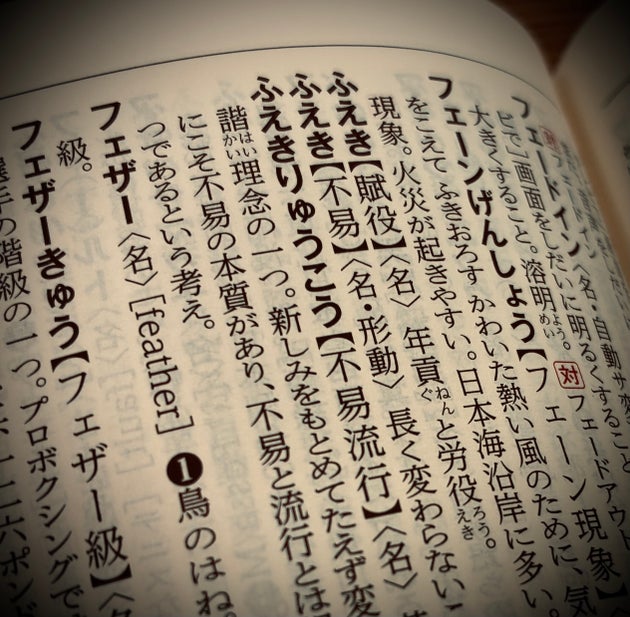 フェードイン〈名・自動サ変
ビで、画面をしだいに明るくすること。溶明。対フェードアウト
フェーンげんしょう【フェーン現象】〈
大きくすること。
をこえて ふきおろす かわいた熱い風のために、気
現象。火災が起きやすい。日本海沿岸に多い。
ふえき【賦役】〈名〉年貢と労役。
ふえき【不易】〈名・形動〉長く変わらないこ
ふえきりゅうこう【不易流行】〈名〉
諧理念の一つ。新しみをもとめてたえず変
にこそ不易の本質があり、不易と流行とは
つであるという考え。
フェザー〈名〉[feather] ❶鳥のはね。
級。
フェザーきゅう【フェザー級】〈名
選手の階級の一つ。プロボクシングで